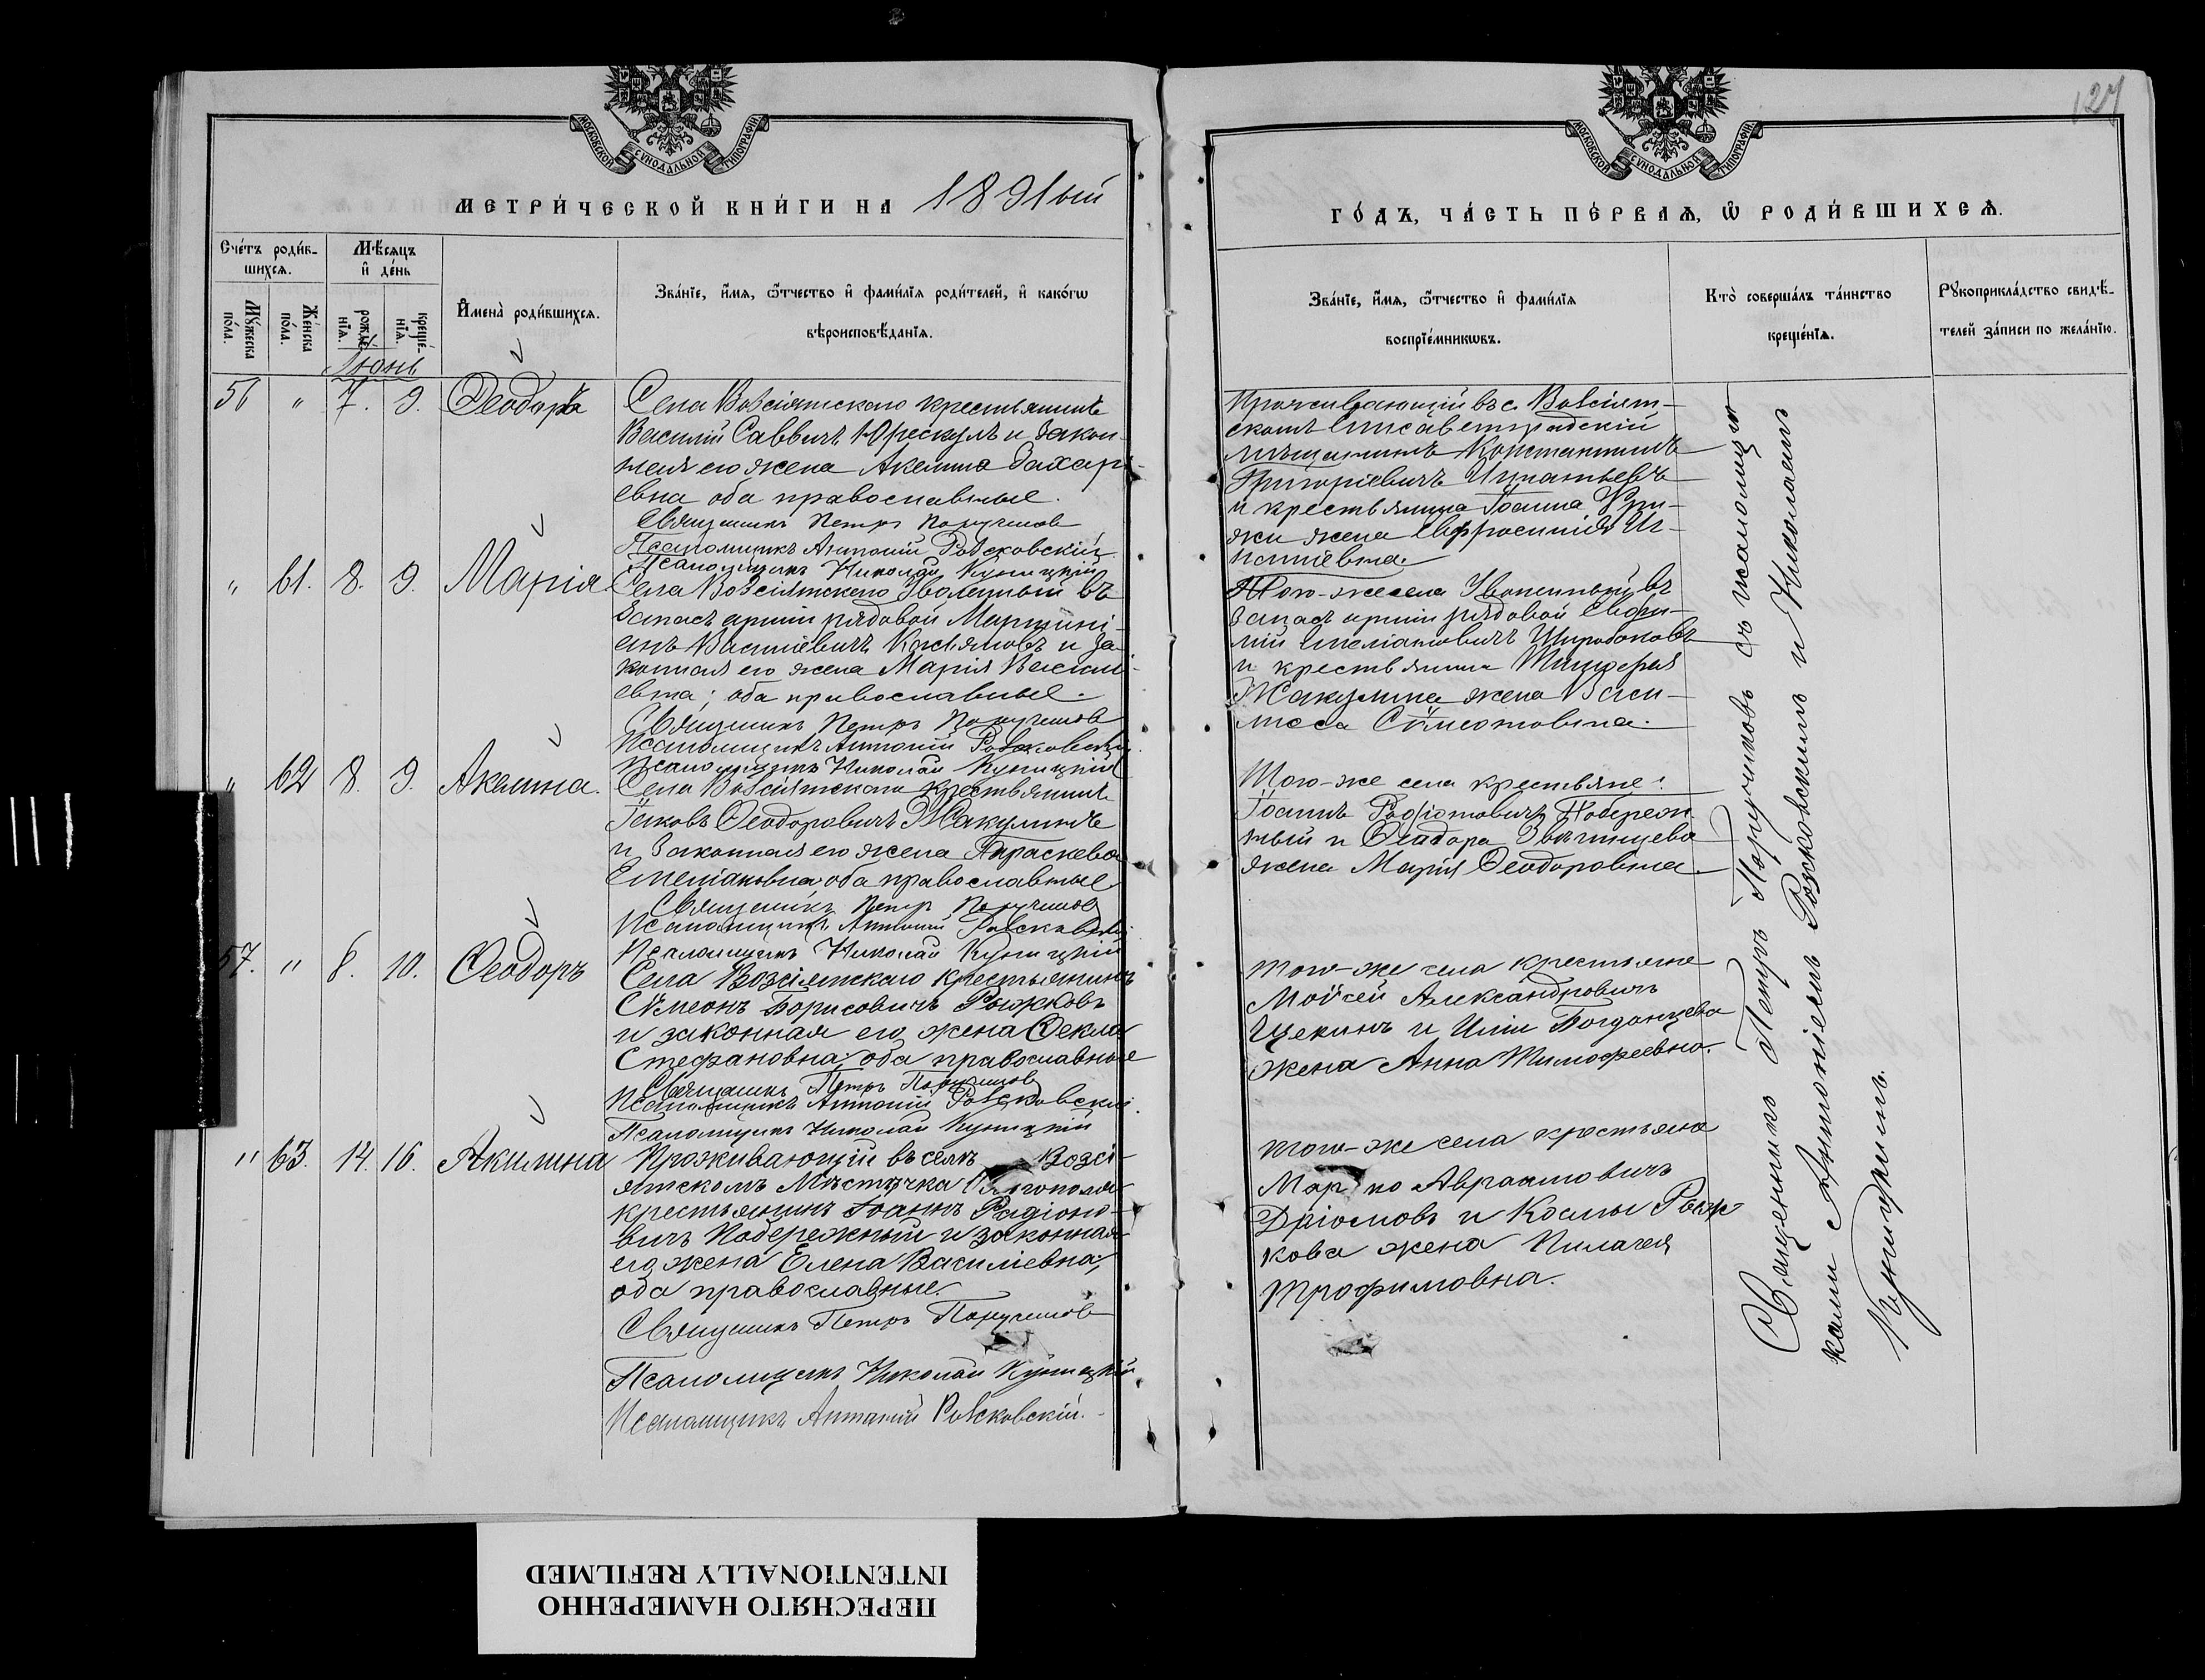 127
МОСКОВСКОЙ СѴНОДАЛЬНОЙ ТИПОГРАФІИ
МОСКОВСКОЙ СѴНОДАЛЬНОЙ ТИПОГРАФІИ
МЕТРИ́ЧЕСКОЙ КНИ́ГИ НА 1891ый
ГО́ДЪ, ЧА́СТЬ ПЕ́РВАѦ, Ѡ҆ РОДИ́ВШИХСѦ.
Сче́тъ роди́в-
шихсѧ.
Мѣ́сяцъ
и҆ де́нь
Мꙋ́жеска
по́ла.
Же́нска
по́ла.
рожде́-
нїѧ.
креще́-
нїѧ.
И҆мена̀ роди́вшихсѧ.
Зва́нїе, и҆́мѧ, ѻ҆́тчество и҆ фами́лїѧ роди́телей, и҆ како́гѡ
вѣроисповѣ́данїѧ.
Зва́нїе, и҆́мѧ, ѻ҆́тчество и҆ фами́лїѧ
воспрїе́мникѡвъ.
Кто̀ соверша́лъ та́инство
креще́нїѧ.
Рꙋкоприкла́дство свидѣ́-
телей за́писи по жела́нїю.
Іюнь
56 " 7. 9. Ѳеодоръ
Села Возсіятскаго крестьянинъ
Василій Саввичъ Юрескулъ и закон-
ная его жена Акелина Захарі-
евна оба православные.
Священникъ Петръ Поручиков
Псаломщикъ Антоній Рожковскій
Псаломщикъ Николай Куницкій
Проживающій въ с. Возсіят-
скомъ Елисаветградскій
мѣщанинъ Константинъ
Григоріевичъ Игнатьевъ
и крестьянина Іоанна
жена Евфросинія Иг-
натіевна.
" 61. 8. 9. Марія.
Села Возсіятскаго Уволенный въ
запасъ арміи рядовой Мартині-
анъ Василіевичъ и за-
конная его жена Марія Василі-
евна; оба православные.
Священникъ Петръ Поручиков
Псаломщикъ Антоній Рожковскій.
Псаломщикъ Николай Куницкій
Того-же села Уволенный въ
запасъ арміи рядовой Евфи-
мій Емеліановичъ Широбоковъ
и крестьянина
Жакулина жена Васи-
лисса Сѵмеоновна.
" 62 8. 9. Акелина.
Села Возсіятскаго крестьянинъ
Іаковъ Ѳеодоровичъ Жакулинъ
и законная его жена Параскева
Емеліановна, оба православные
Священникъ Петръ Поручиков
Псаломщикъ Антоній Рожковскій
Псаломщикъ Николай Куницкій
Того-же села крестьяне:
Іоаннъ Родіоновичъ Побереж-
ный и Ѳеодора Звягинцева
жена Марія Ѳеодоровна.
57. " 8. 10. Ѳеодоръ
Села Возсіятскаго крестьянинъ
Сѵмеонъ Борисовичъ Рыжковъ
и законная его жена Ѳекла
Стефановна, оба православные
Священникъ Петръ Поручиков
Псаломщикъ Антоній Рожковскій.
Псаломщикъ Николай Куницкій
Того-же села крестьяне
Моѵсей Александровичъ
Щекинъ и Иліи Богданцева
жена Анна Тимоѳеевна.
" 63. 14. 16. Акилина
Проживающій въ селѣ Возсі-
ятскомъ Мѣстечка
крестьянинъ Іоаннъ Радіоно-
вичъ Побережный и законная
его жена Елена Василіевна,
оба православные.
Священникъ Петръ Поручиков
Псаломщикъ Николай Куницкій
Псаломщикъ Антоній Рожковскій.
Того-же села крестьяне
Марко Авраамовичъ
и Космы Рыж-
кова жена Пилагея
Трофимовна.
Священникъ Петръ Поручиковъ съ псаломщи-
ками Антоніемъ Рожковскимъ и Николаемъ
Куницкимъ.
ПЕРЕСНЯТО НАМЕРЕННО
INTENTIONALLY REFILMED